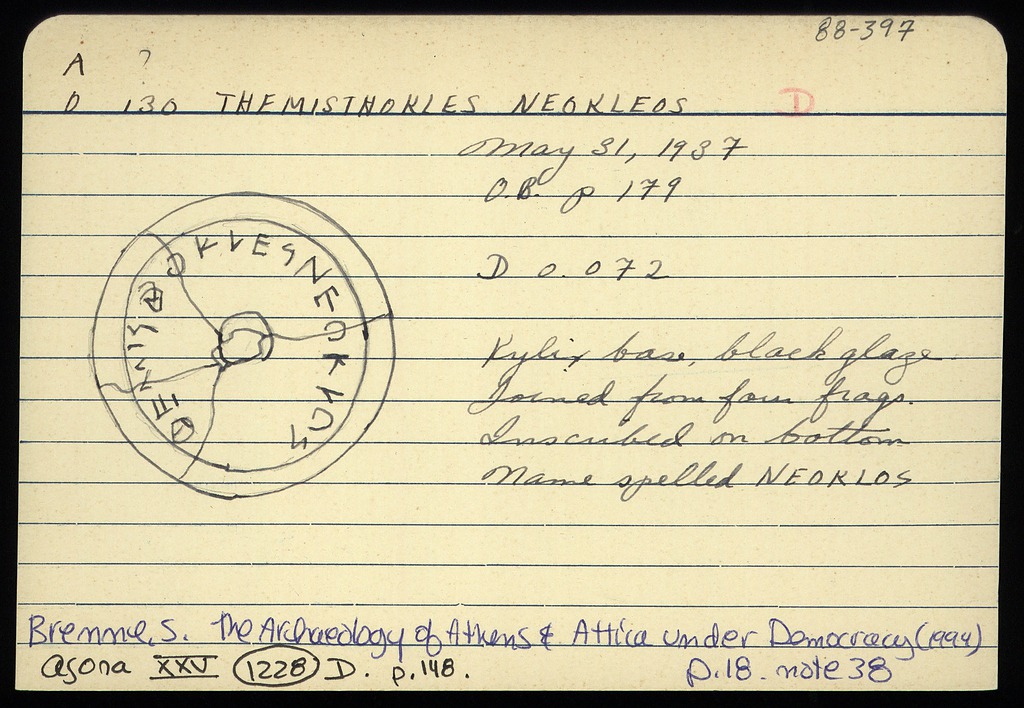 88-397
A ?
O 130 THEMISTHOKLES NEOKLEOS D
May 31, 1937
O.B. p 179
D 0.072
Kylix base, black glaze.
Joined from four frags.
Inscribed on bottom
Name spelled NEOKLOS
Bremme, S. The Archaeology of Athens & Attica under Democracy (1994)
Agora XXV 1228 D. p.148.
p.18. note 38